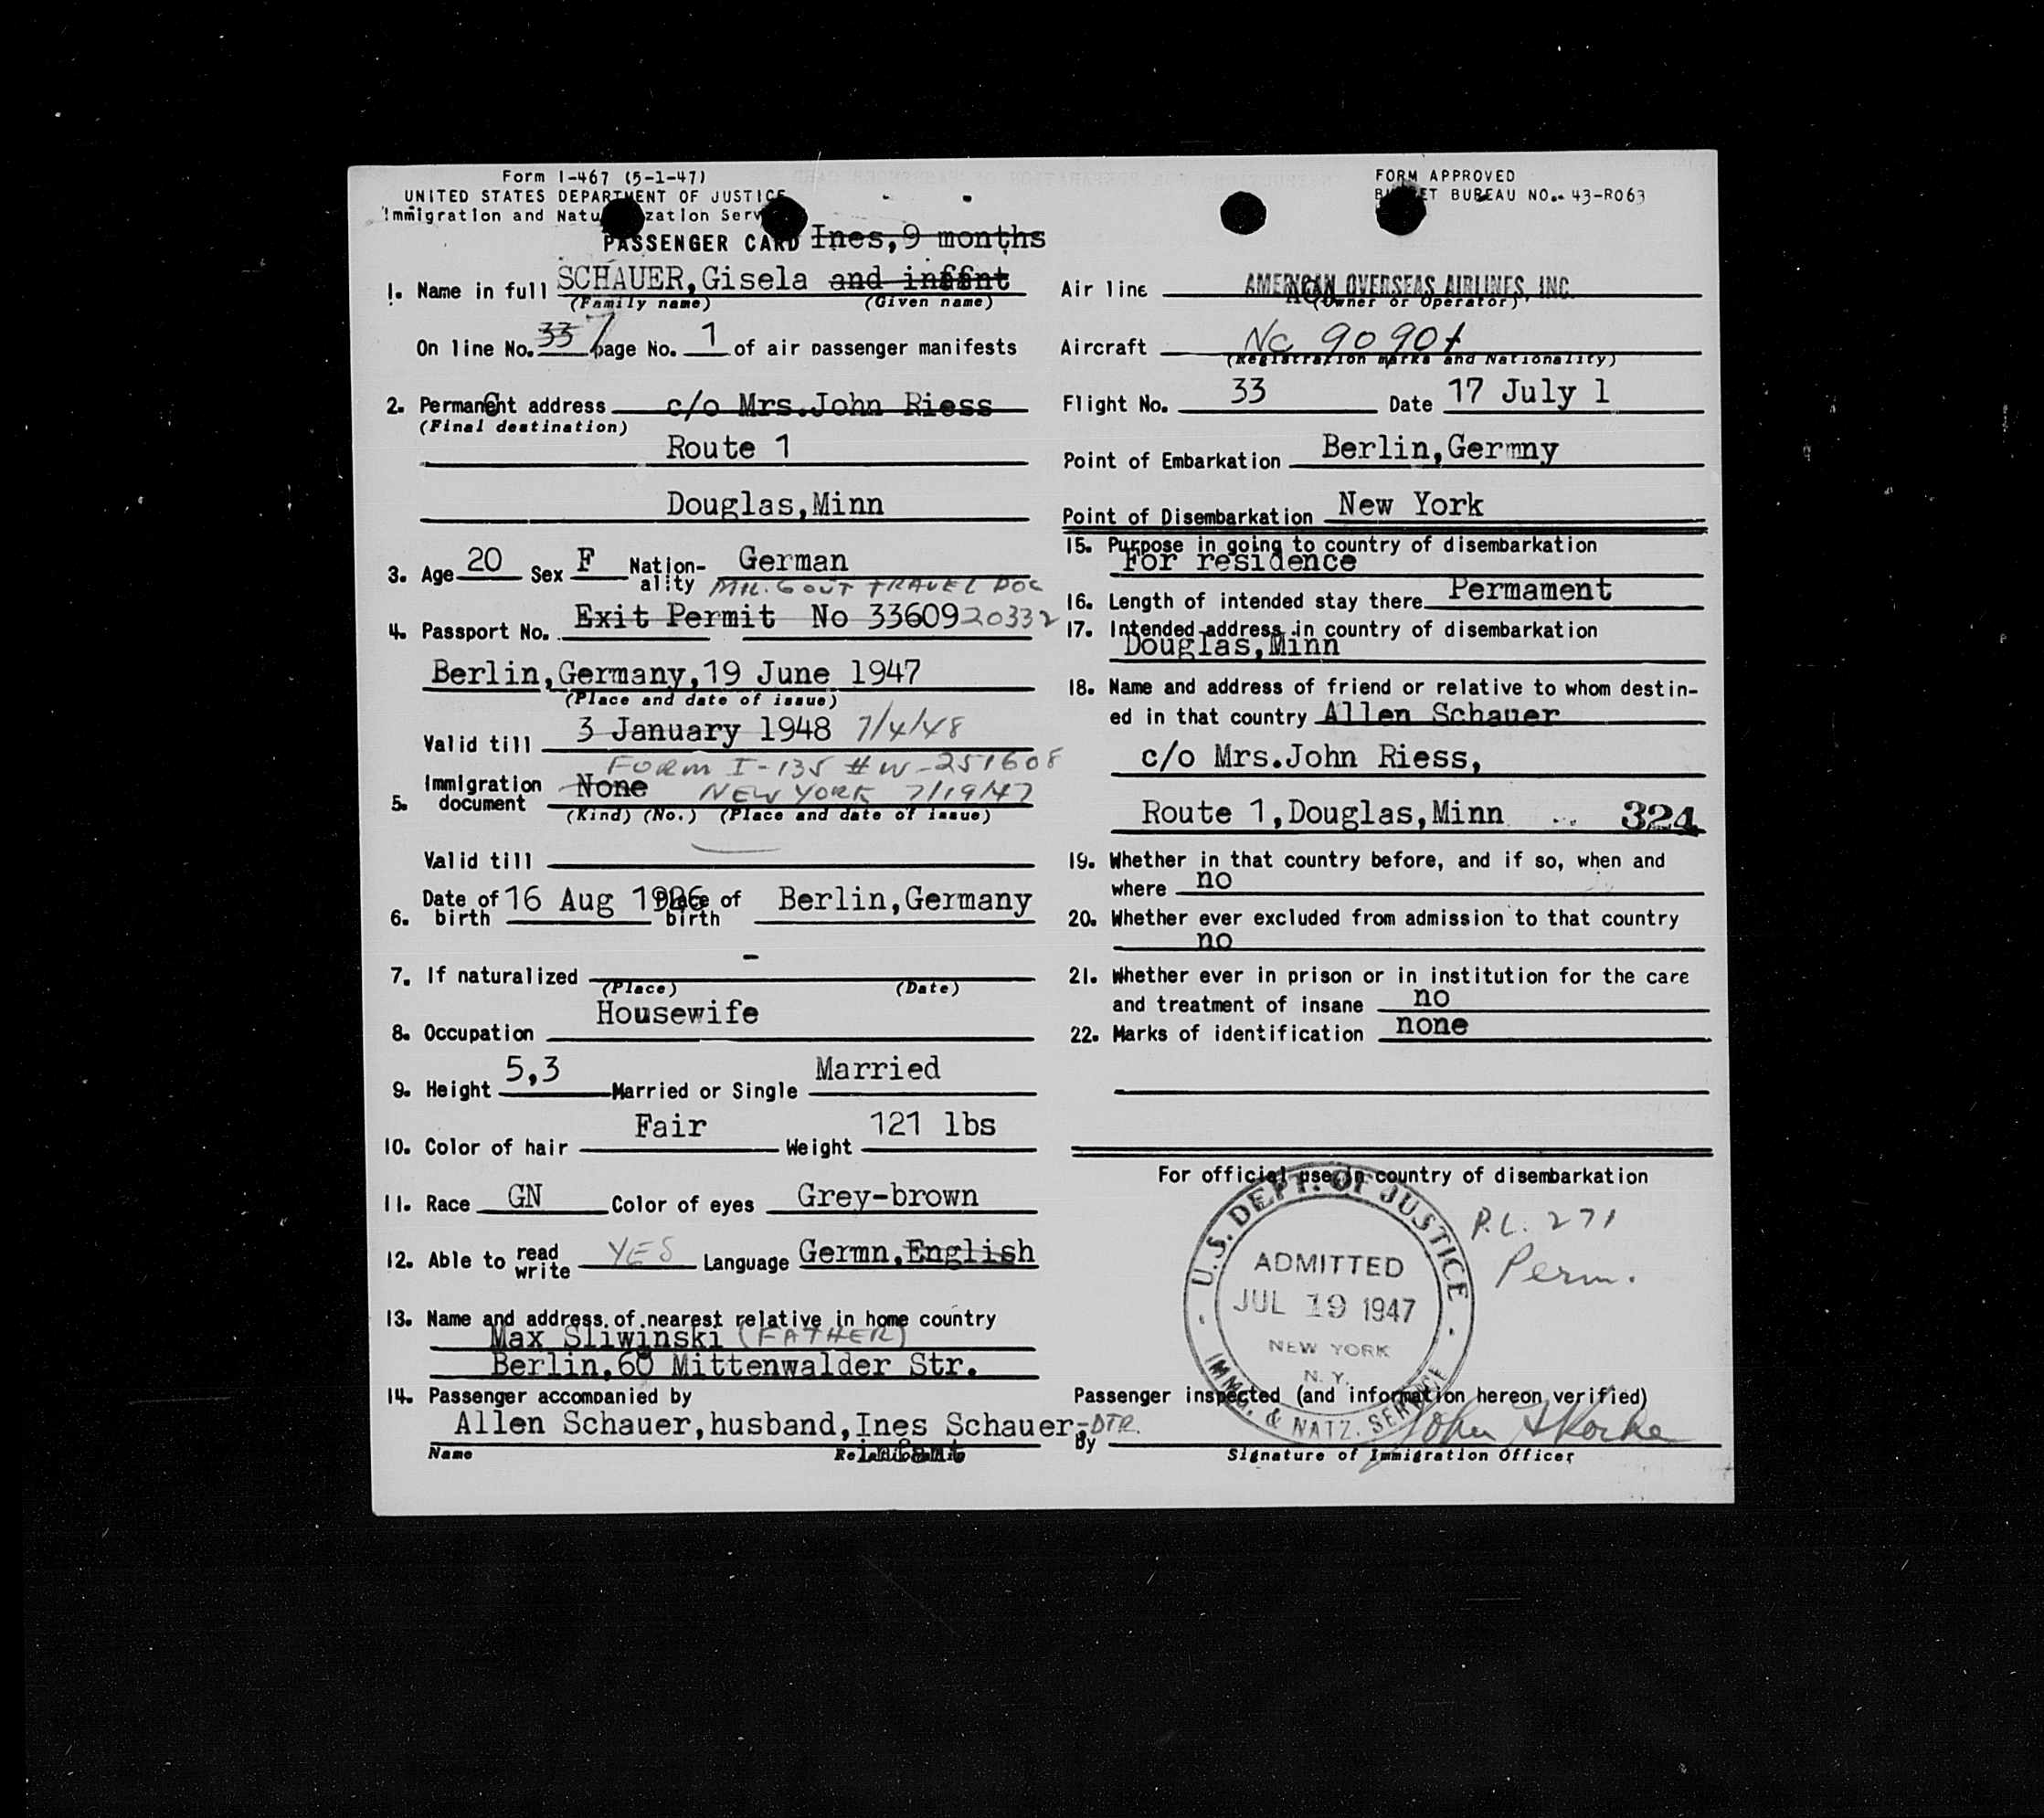 Form I-467 (5-1-47)
UNITED STATES DEPARTMENT OF JUSTICE
Immigration and Natu zation Serv
PASSENGER CARD Ines,9 months
1. Name in full SCHAUER,Gisela and infant
(Family name) (Given name)
On line No. 33 7 page No. 1 of air passenger manifests
2. Permanent address c/o Mrs.John Riess
(Final destination)
Route 1
Douglas,Minn
3. Age 20 Sex F Nation-ality German
MIL. GOUT TRAVEL DOC
4. Passport No. Exit Permit No 33609 20332
Berlin,Germany,19 June 1947
(Place and date of issue)
Valid till 3 January 1948 7/4/48
FORM I-135 #W-251608
5. Immigration document None NEW YORK 7/19/47
(Kind) (No.) (Place and date of issue)
Valid till
6. Date of birth 16 Aug 1926 Place of birth Berlin,Germany
7. If naturalized -
(Place) (Date)
8. Occupation Housewife
9. Height 5,3 Married or Single Married
10. Color of hair Fair Weight 121 lbs
11. Race GN Color of eyes Grey-brown
12. Able to read write YES Language Germn,English
13. Name and address of nearest relative in home country
Max Sliwinski (FATHER)
Berlin,60 Mittenwalder Str.
14. Passenger accompanied by
Allen Schauer,husband,Ines Schauer,-DTR.
infant
Name Relationship
FORM APPROVED
B ET BUREAU NO. 43-R063
Air line AMERICAN OVERSEAS AIRLINES, INC.
(Owner or Operator)
Aircraft NC 90901
(Registration marks and Nationality)
Flight No. 33 Date 17 July 1
Point of Embarkation Berlin,Germny
Point of Disembarkation New York
15. Purpose in going to country of disembarkation
For residence
16. Length of intended stay there Permament
17. Intended address in country of disembarkation
Douglas,Minn
18. Name and address of friend or relative to whom destin-
ed in that country Allen Schauer
c/o Mrs.John Riess,
Route 1,Douglas,Minn 324
19. Whether in that country before, and if so, when and
where no
20. Whether ever excluded from admission to that country
no
21. Whether ever in prison or in institution for the care
and treatment of insane no
22. Marks of identification none
For official use in country of disembarkation
U.S. DEPT. OF JUSTICE
ADMITTED
JUL 19 1947
NEW YORK
N. Y.
IMMG. & NATZ. SERVICE
P.L. 271
Perm.
Passenger inspected (and information hereon verified)
By John
Signature of Immigration Officer